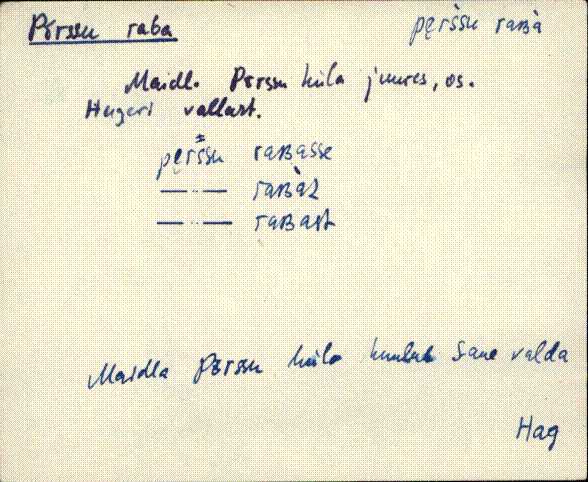 Põrssu raba
pe̮ŕśsu raʙà
Maidl. Põrssu küla juures, os.
Hageri vallast.
pe̮ŕśsu raʙasse
— ·· — raʙàz
— ·· — raʙast
Maidla Põrssu küla kuulub Saue valda
Hag